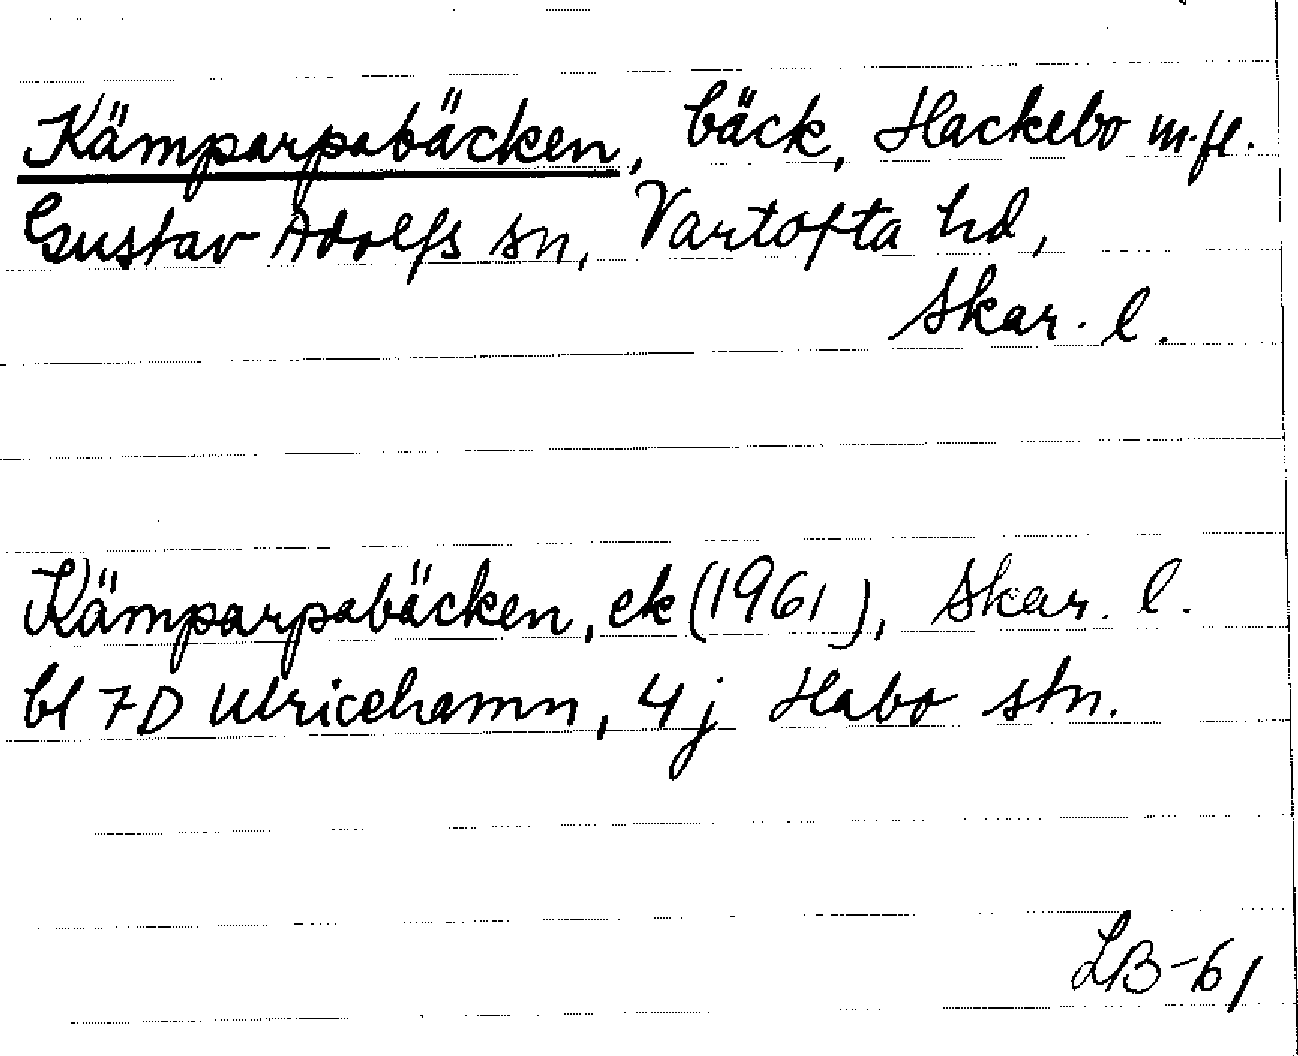 Kämparpabäcken, bäck, Hackebo m.fl.
Gustav Adolfs sn, Vartofta hd,
Skar. l.
Kämparpabäcken, ek (1961), Skar. l.
bl 7D Ulricehamn, 4 j Habo stn.
LB-61